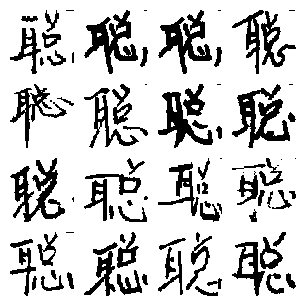 聪聪聪聪
聪聪聪聪
聪聪聪聪
聪聪聪聪